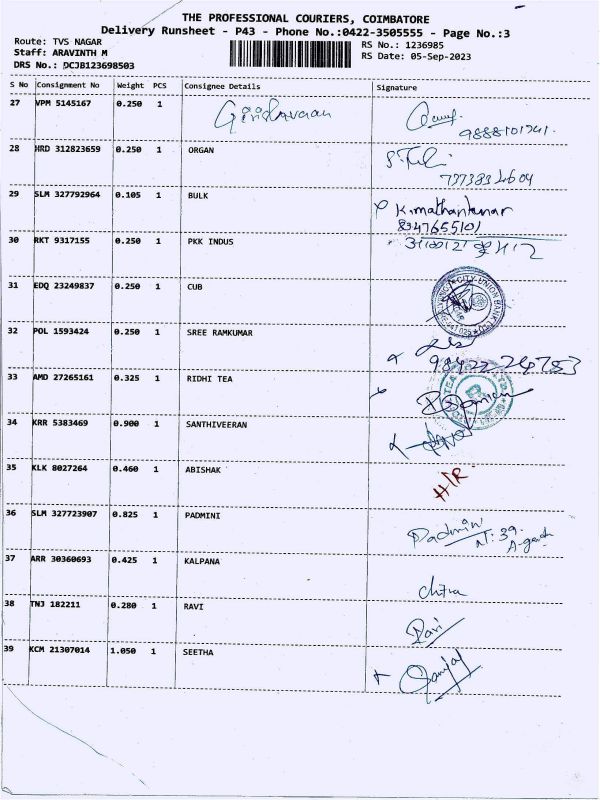 THE PROFESSIONAL COURIERS, COIMBATORE
Delivery Runsheet - P43 - Phone No.:0422-3505555 - Page No.:3
Route: TVS NAGAR
RS No.: 1236985
Staff: ARAVINTH M
RS Date: 05-Sep-2023
DRS No.: DCJB123698503
S No Consignment No Weight PCS Consignee Details Signature
27 VPM 5145167 0.250 1
9888101741.
28 HRD 312823659 0.250 1 ORGAN
29 SLM 327792964 0.105 1 BULK
K.mathankumar
8347655101
30 RKT 9317155 0.250 1 PKK INDUS
31 EDQ 23249837 0.250 1 CUB
CITY UNION BANK
32 POL 1593424 0.250 1 SREE RAMKUMAR
33 AMD 27265161 0.325 1 RIDHI TEA
34 KRR 5383469 0.900 1 SANTHIVEERAN
35 KLK 8027264 0.460 1 ABISHAK H/R
36 SLM 327723907 0.825 1 PADMINI Padmini
37 ARR 30360693 0.425 1 KALPANA
Chitra
38 TNJ 182211 0.280 1 RAVI
Ravi
39 KCM 21307014 1.050 1 SEETHA